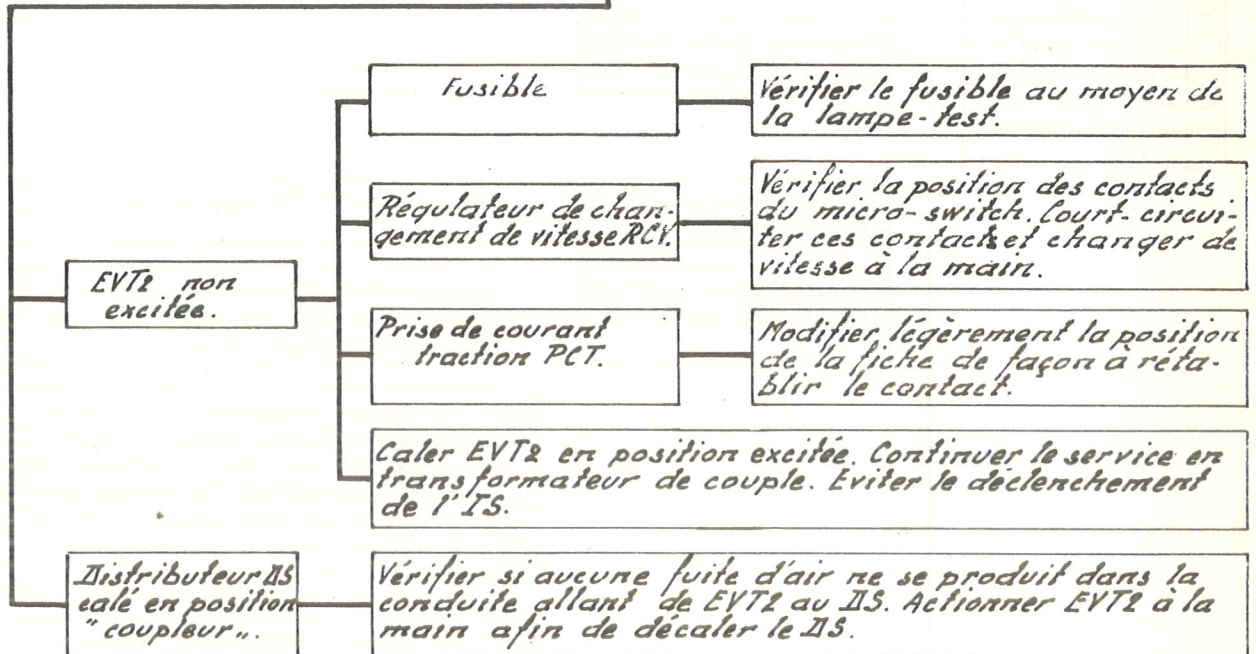 Fusible
Vérifier le fusible au moyen de
la lampe-test.
Régulateur de chan-
gement de vitesse RCV.
Vérifier la position des contacts
du micro-switch. Court-circui-
ter ces contacts et changer de
vitesse à la main.
EVT2 non
excitée.
Prise de courant
traction PCT.
Modifier légèrement la position
de la fiche de façon à réta-
blir le contact.
Caler EVT2 en position excitée. Continuer le service en
transformateur de couple. Eviter le déclenchement
de l'IS.
Distributeur DS
calé en position
"coupleur".
Vérifier si aucune fuite d'air ne se produit dans la
conduite allant de EVT2 au DS. Actionner EVT2 à la
main afin de décaler le DS.